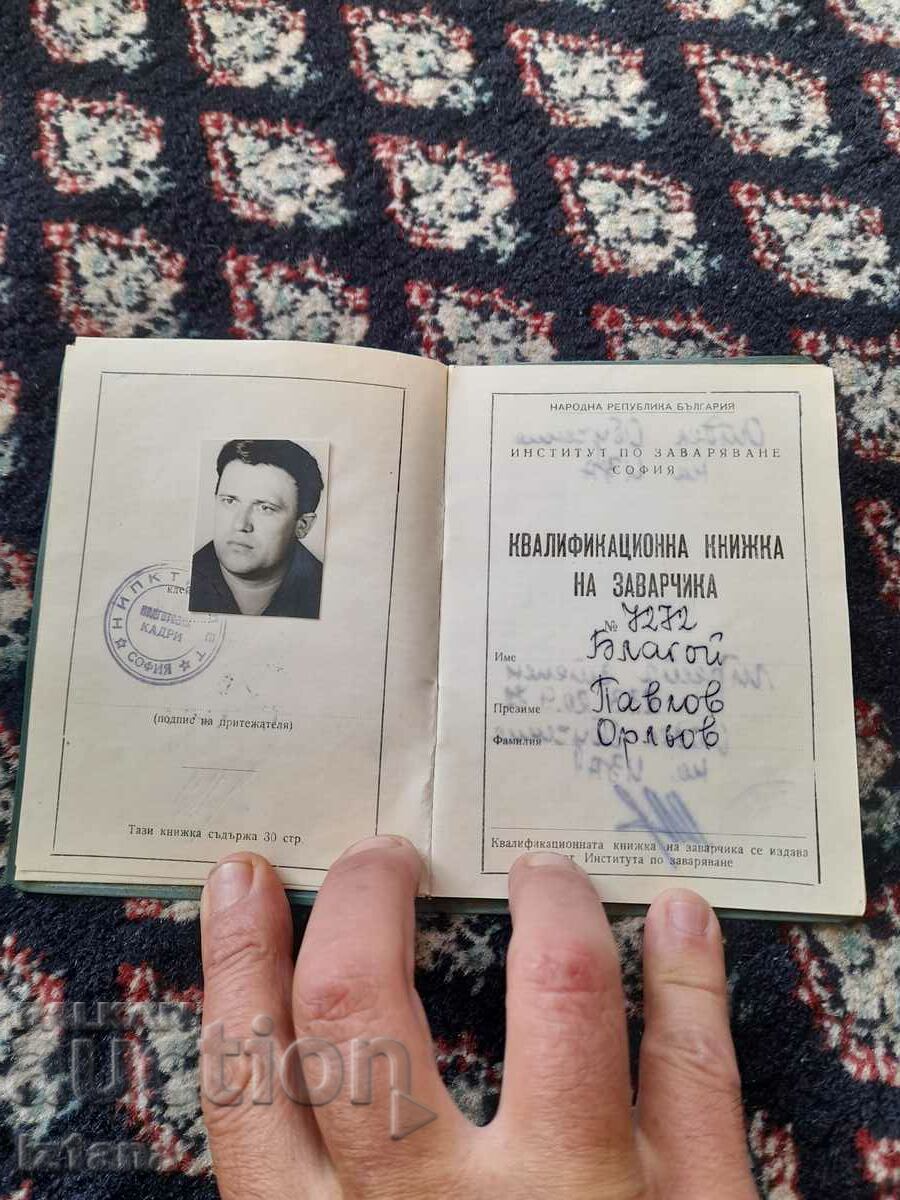 клей
НИПКТ
КАДРИ
СОФИЯ
(подпис на притежателя)
Тази книжка съдържа 30 стр.
НАРОДНА РЕПУБЛИКА БЪЛГАРИЯ
ИНСТИТУТ ПО ЗАВАРЯВАНЕ
СОФИЯ
КВАЛИФИКАЦИОННА КНИЖКА
НА ЗАВАРЧИКА
№ 7272
Име Благой
Презиме Павлов
Фамилия Орльов
Квалификационната книжка на заварчика се издава
от Института по заваряване
auction
iztana